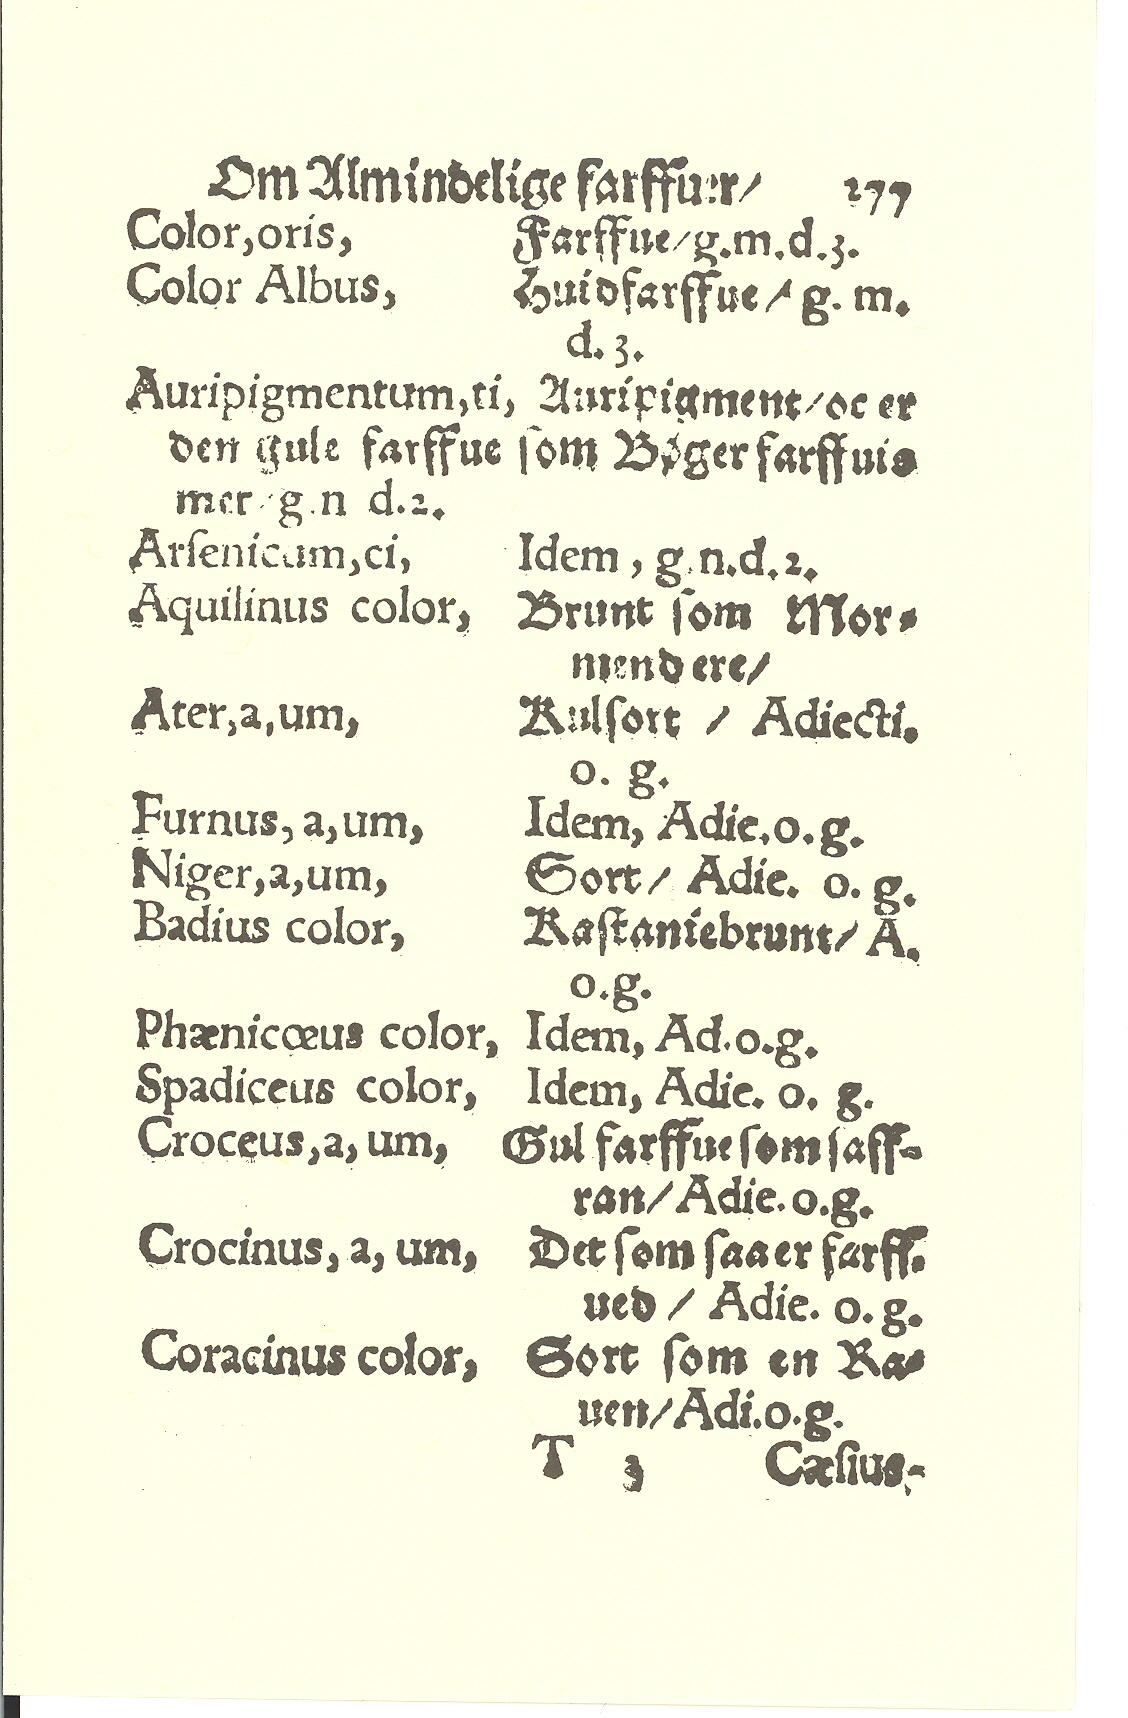 Om Almindelige farffuer/ 277
Color,oris, Farffue/g.m.d.3.
Color Albus, Huidfarffue/ g. m.
d. 3.
Auripigmentum,ti, Auripigment/oc er
den gule farffue som Bøger farffuis
mer/g.n d.2.
Arſenicum,ci, Idem, g.n.d.2.
Aquilinus color, Brunt ſom Mor-
mendere/
Ater,a,um, Kulſort / Adiecti.
o. g.
Furnus, a,um, Idem, Adie.o.g.
Niger,a,um, Sort/ Adie. o. g.
Badius color, Kaſtaniebrunt/ A.
o.g.
Phænicœus color, Idem, Ad.o.g.
Spadiceus color, Idem, Adie. o. g.
Croceus,a, um, Gul farffue ſom ſaff-
ran/Adie.o.g.
Crocinus, a, um, Det ſom ſaa er farff-
ued / Adie. o. g.
Coracinus color, Sort ſom en Ra-
uen/Adi.o.g.
T 3 Cæſius-